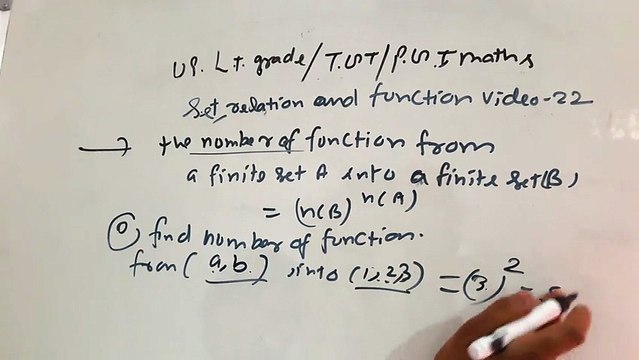 UP. L.T. grade/T.G.T/P.G.T maths
Set, relation and function video-22
→ the number of function from
a finite set A into a finite set(B)
= (n(B)) n(A)
Q, find number of function.
from (a,b) into (1,2,3) = (3)² =